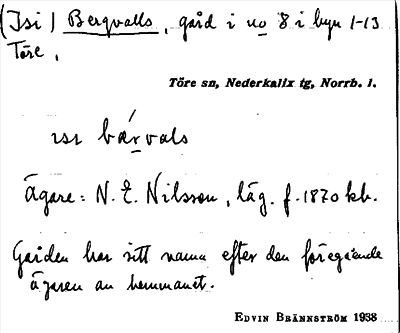 (Isi) Bergvalls, gård i no 8 i byn 1-13
Töre.
Töre sn, Nederkalix tg, Norrb. l.
ɪsɪ bærvals
Ägare: N. E. Nilsson, läg. f. 1870 kb.
Gården har sitt namn efter den föregående
ägaren av hemmanet.
EDVIN BRÄNNSTRÖM 1938